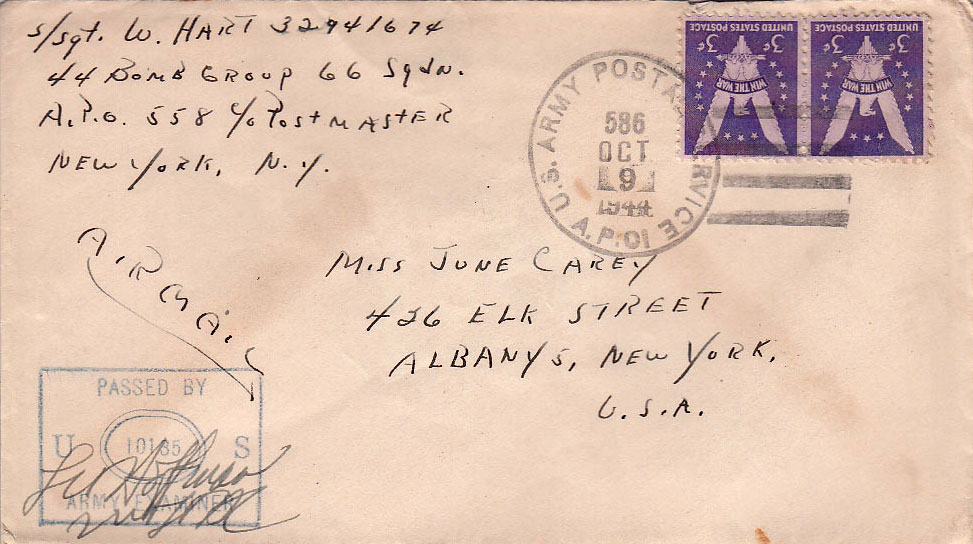 S/Sgt. W. HART 32941674
44 BOMB GROUP 66 Sqdn.
A.P.O. 558 c/o POSTMASTER
NEW YORK, N.Y.
UNITED STATES POSTAGE
3¢
WIN THE WAR
UNITED STATES POSTAGE
3¢
WIN THE WAR
U.S. ARMY POSTAL SERVICE
586
OCT
9
1944
A.P.O.
AIR MAIL
MISS JUNE CAREY
426 ELK STREET
ALBANY 5, NEW YORK.
U.S.A.
PASSED BY
U 10185 S
ARMY EXAMINER